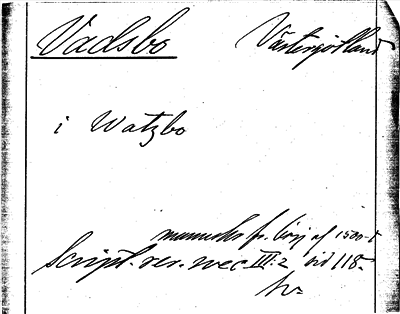 Vadsbo Västergötland
i Watzbo
manuskr fr. början af 1500-t
Script. rer. svec III:2 sid 118.